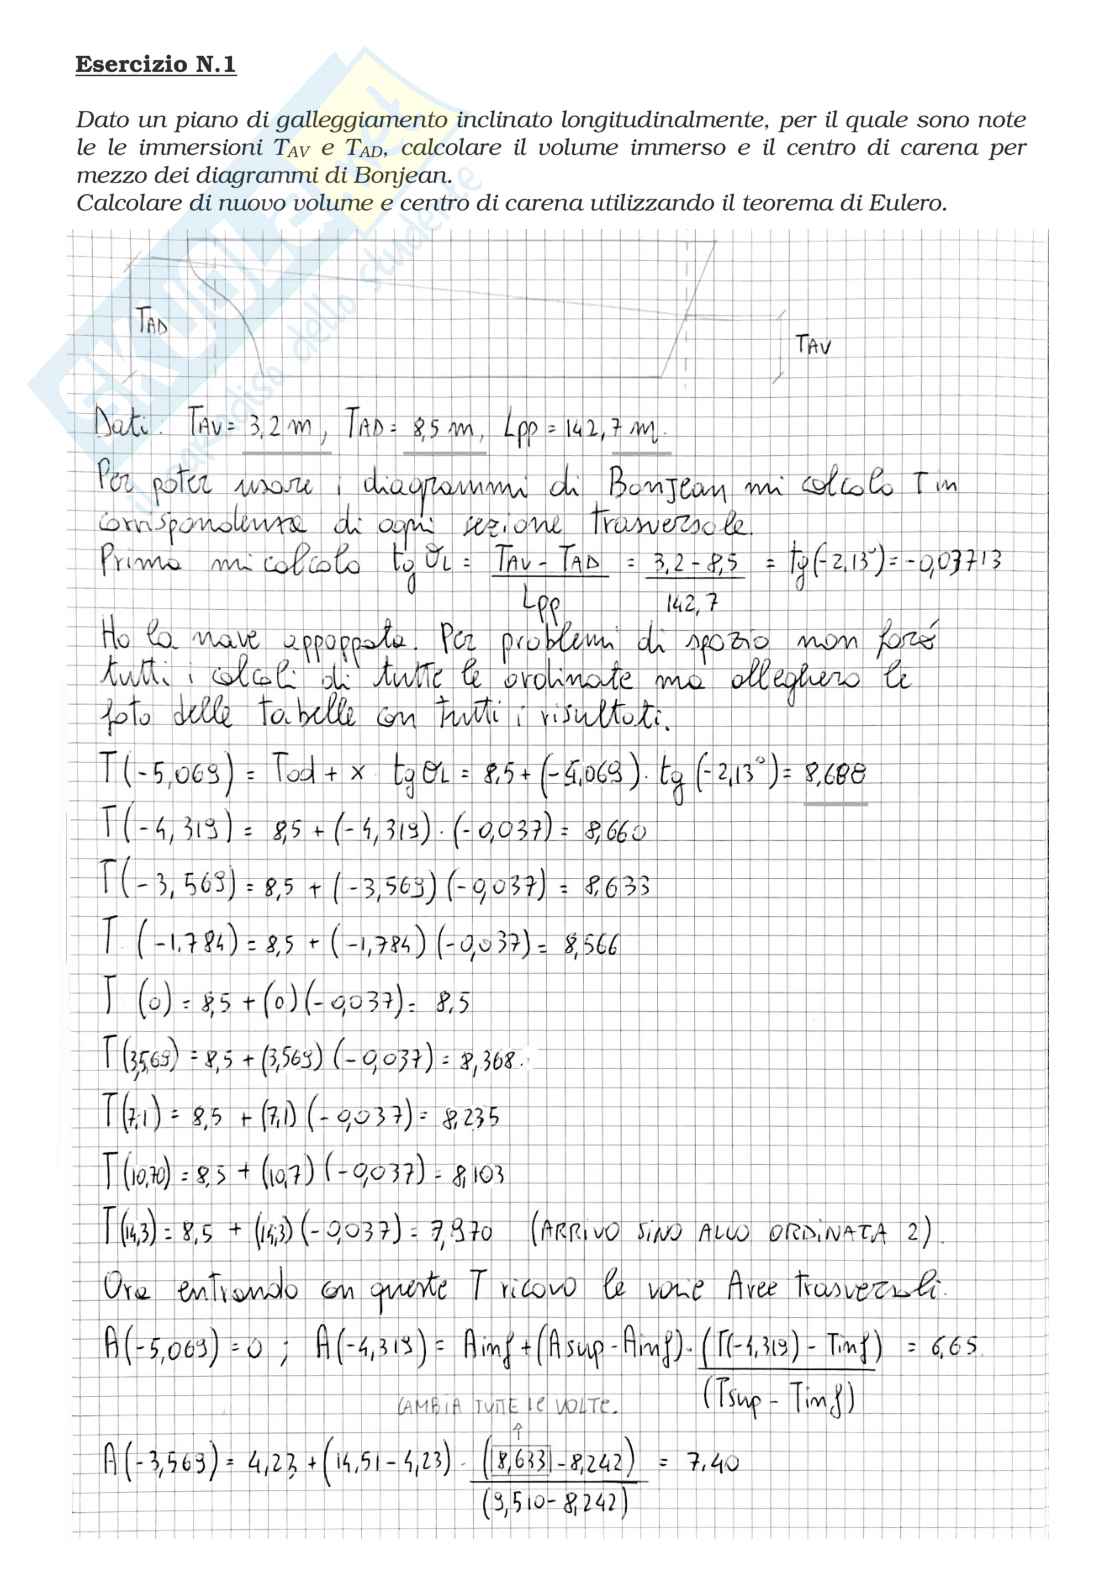 Esercizio N.1
Dato un piano di galleggiamento inclinato longitudinalmente, per il quale sono note
le le immersioni TAV e TAD, calcolare il volume immerso e il centro di carena per
mezzo dei diagrammi di Bonjean.
Calcolare di nuovo volume e centro di carena utilizzando il teorema di Eulero.
SKUOLA.net
il paradiso dello studente
TAD
TAV
Dati. TAV = 3,2 m, TAD = 8,5 m, Lpp = 142,7 m.
Per poter usare i diagrammi di Bonjean mi calcolo T in
corrispondenza di ogni sezione trasversale.
Prima mi calcolo tg ϑL = TAV - TAD / Lpp = 3,2 - 8,5 / 142,7 = tg(-2,13°) = -0,03713
Ho la nave appoppata. Per problemi di spazio non farò
tutti i calcoli di tutte le ordinate ma allegherò le
foto delle tabelle con tutti i risultati.
T(-5,069) = Tad + x tg ϑL = 8,5 + (-5,069) · tg(-2,13°) = 8,688
T(-4,319) = 8,5 + (-4,319) · (-0,037) = 8,660
T(-3,569) = 8,5 + (-3,569) (-0,037) = 8,633
T (-1.784) = 8,5 + (-1,784) (-0,037) = 8,566
T (0) = 8,5 + (0) (-0,037) = 8,5
T(3,569) = 8,5 + (3,569) (-0,037) = 8,368.
T(7,1) = 8,5 + (7,1) (-0,037) = 8,235
T(10,70) = 8,5 + (10,7) (-0,037) = 8,103
T(14,3) = 8,5 + (14,3) (-0,037) = 7,970 (ARRIVO SINO ALLO ORDINATA 2).
Ora entrando con queste T ricavo le varie Aree trasversali.
A(-5,069) = 0 ; A(-4,319) = Ainf + (Asup - Ainf) · (T(-4,319) - Tinf) / (Tsup - Tinf) = 6,65
CAMBIA TUTTE LE VOLTE.
A(-3,569) = 4,23 + (14,51 - 4,23) · (8,633 - 8,242) / (9,510 - 8,242) = 7,40